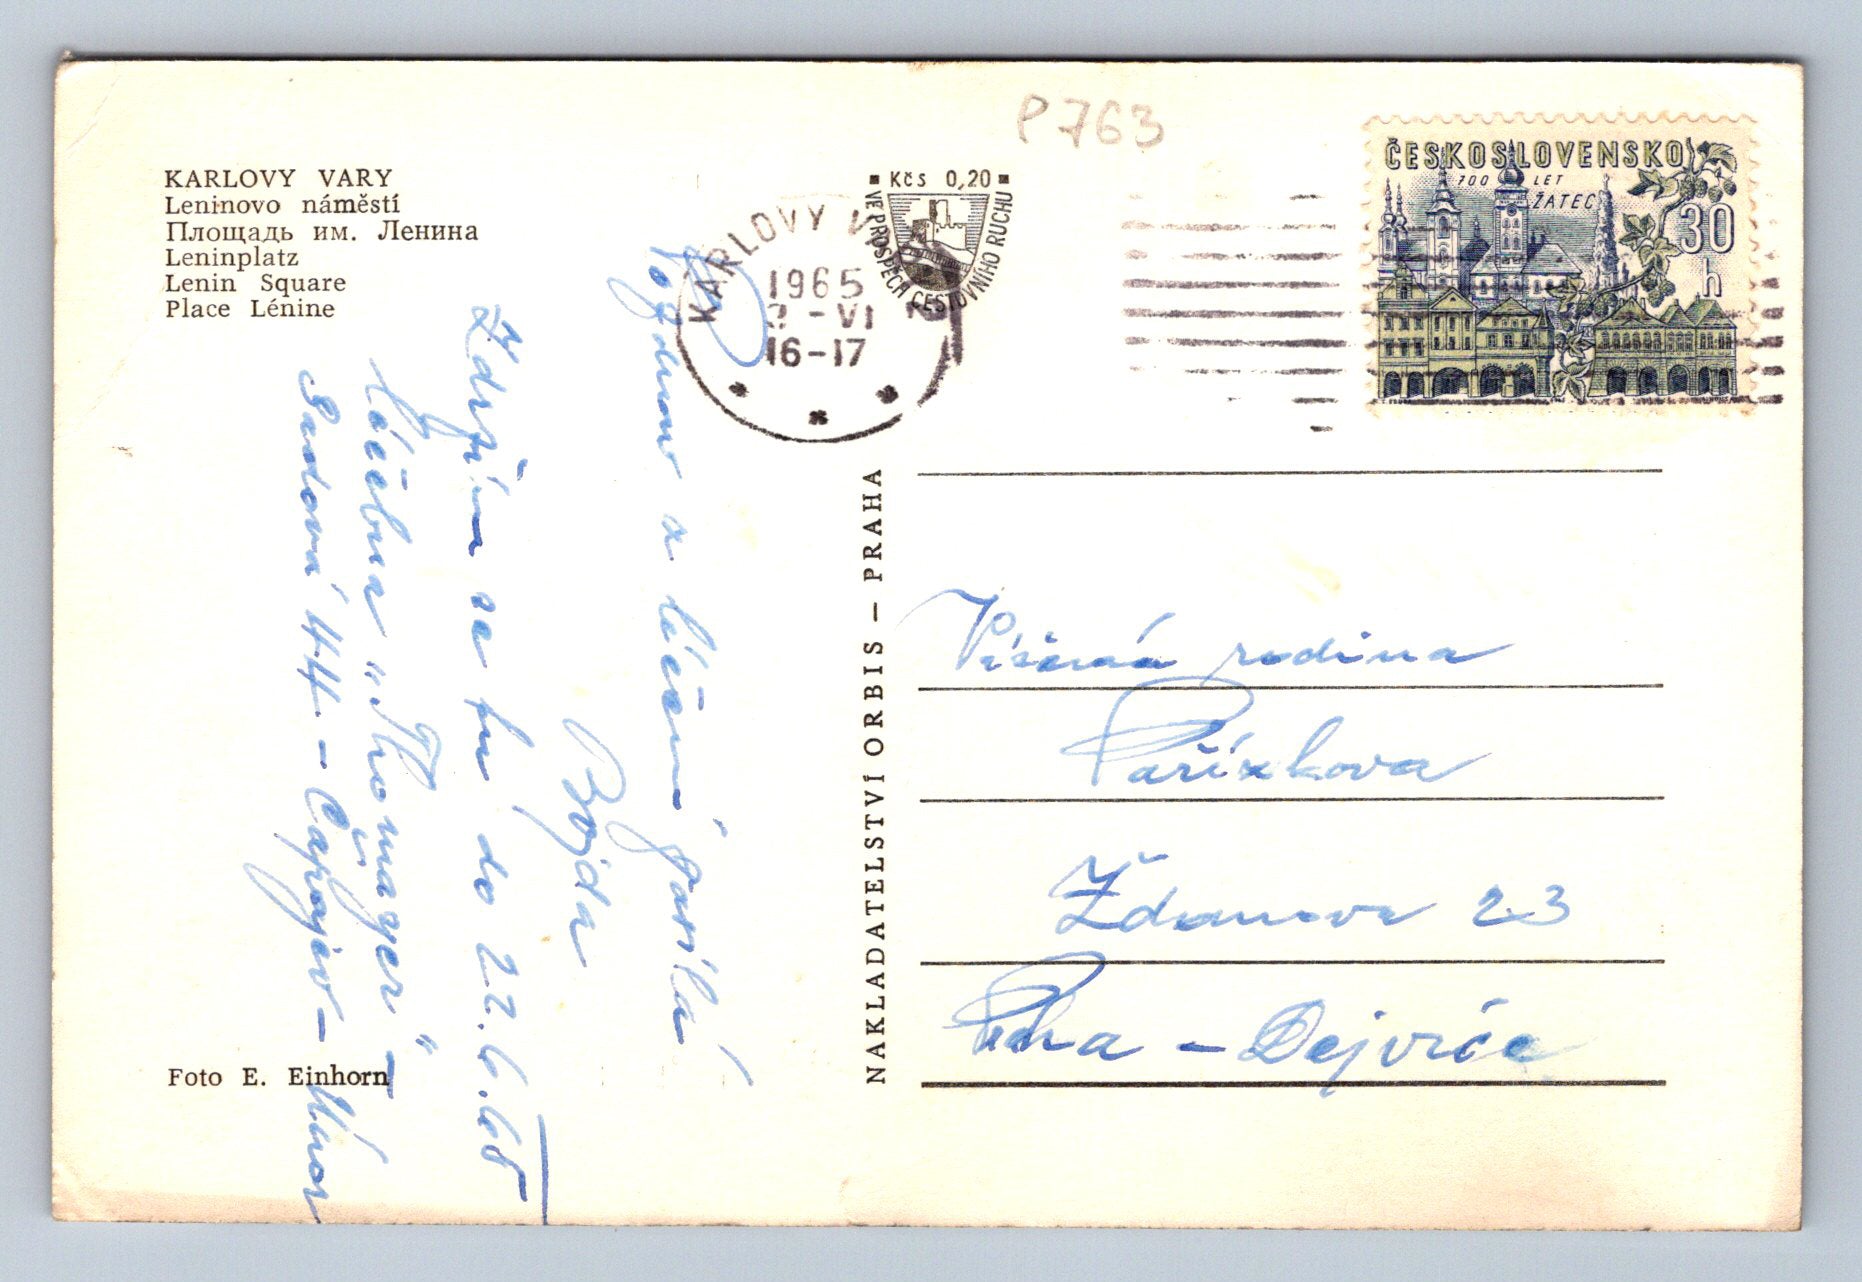 P 763
KARLOVY VARY
Leninovo náměstí
Площадь им. Ленина
Leninplatz
Lenin Square
Place Lénine
KARLOVY V
1965
-VI
16-17
Kčs 0,20
VE PROSPĚCH CESTOVNÍHO RUCHU
ČESKOSLOVENSKO
700 LET
ŽATEC
30
h
Pozdrav z léčení posílá
Bojda
Zdržím se tu do 22.6.65
léčebna „Thomayer" –
Sadová 44 – Čapajev –
NAKLADATELSTVÍ ORBIS – PRAHA
Vážená rodina
Pařízkova
Ždanova 23
Praha – Dejvice
Foto E. Einhorn